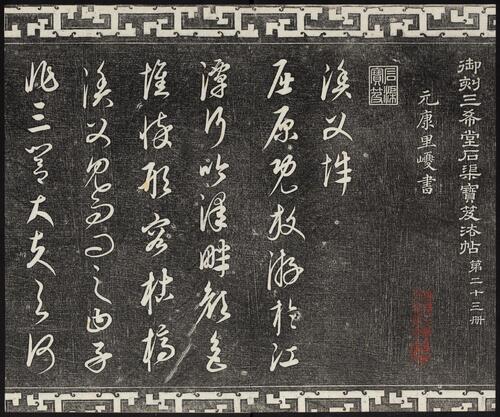 御刻三希堂石渠寶笈法帖 第二十三冊
元康里巎書
石渠寶笈
漁父辭
屈原既放游於江
潭行吟澤畔顏色
憔悴形容枯槁
漁父見而問之曰子
非三閭大夫與何